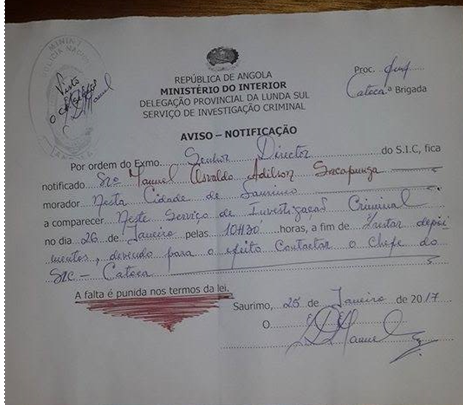 Visto
REPÚBLICA DE ANGOLA
MINISTÉRIO DO INTERIOR
DELEGAÇÃO PROVINCIAL DA LUNDA SUL
SERVIÇO DE INVESTIGAÇÃO CRIMINAL
Proc.
Catoca ª Brigada
AVISO – NOTIFICAÇÃO
Por ordem do Exmo. Senhor Director do S.I.C, fica
notificado Srº Manuel Osvaldo Adilson Sacapunga
morador Nesta Cidade de Saurimo
a comparecer Neste Serviço de Investigação Criminal
no dia 26 de Janeiro pelas 10H30 horas, a fim de Prestar depoi
mentos, devendo para o efeito Contactar o Chefe do
SIC – Catoca
A falta é punida nos termos da lei.
Saurimo, 25 de Janeiro de 2017
O